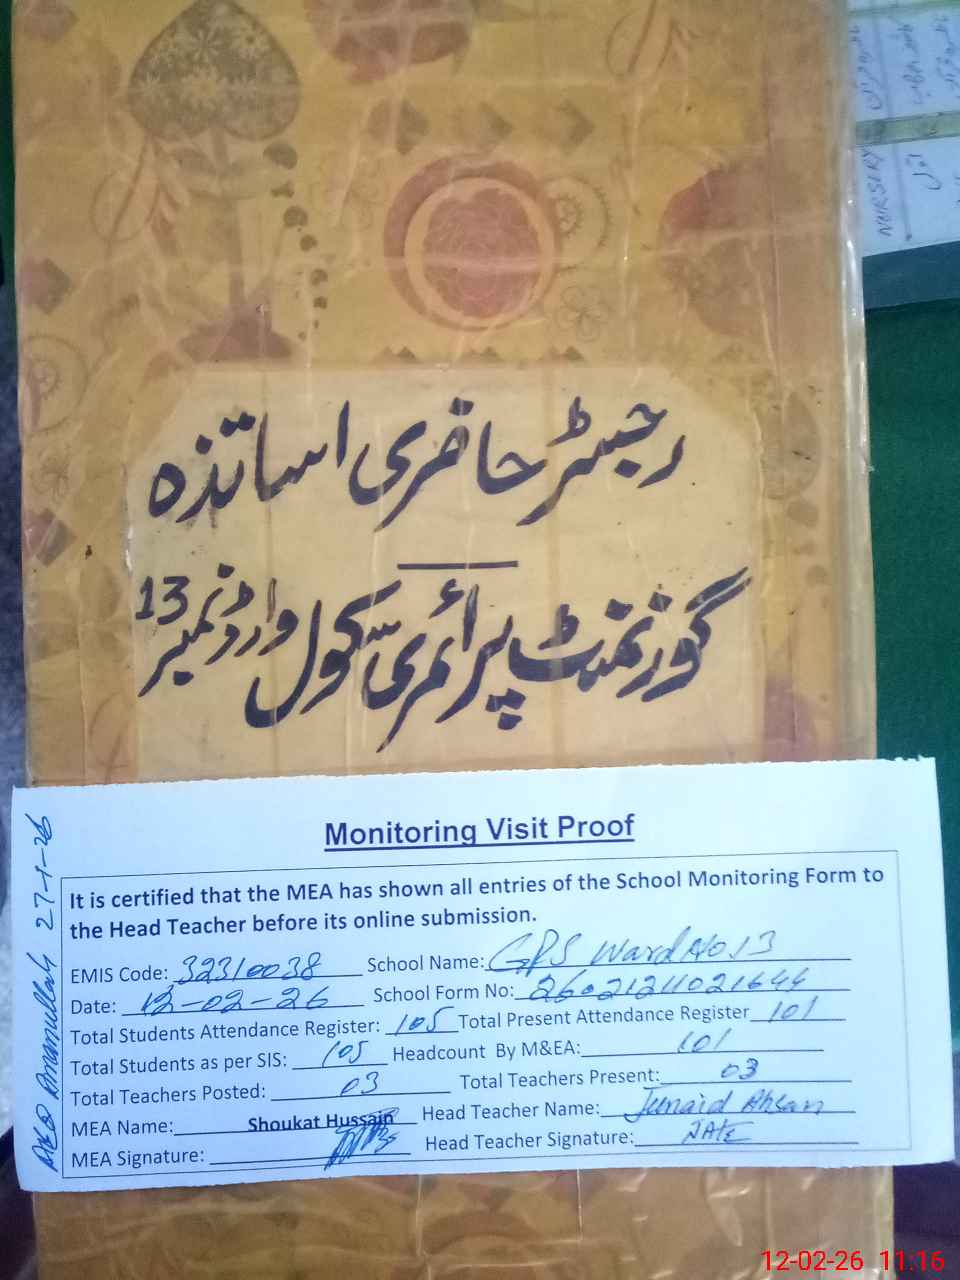 رجسٹر حاضری اساتذہ
گورنمنٹ پرائمری سکول وارڈ نمبر 13
NURSERY
Monitoring Visit Proof
It is certified that the MEA has shown all entries of the School Monitoring Form to
the Head Teacher before its online submission.
EMIS Code: 32310038 School Name: GPS Ward No. 13
Date: 12-02-26 School Form No: 26021211021644
Total Students Attendance Register: 105 Total Present Attendance Register 101
Total Students as per SIS: 105 Headcount By M&EA: 101
Total Teachers Posted: 03 Total Teachers Present: 03
MEA Name: Shoukat Hussain Head Teacher Name: Junaid Ahsan
MEA Signature: Head Teacher Signature:
Amanullah 27-1-26
12-02-26 11:16